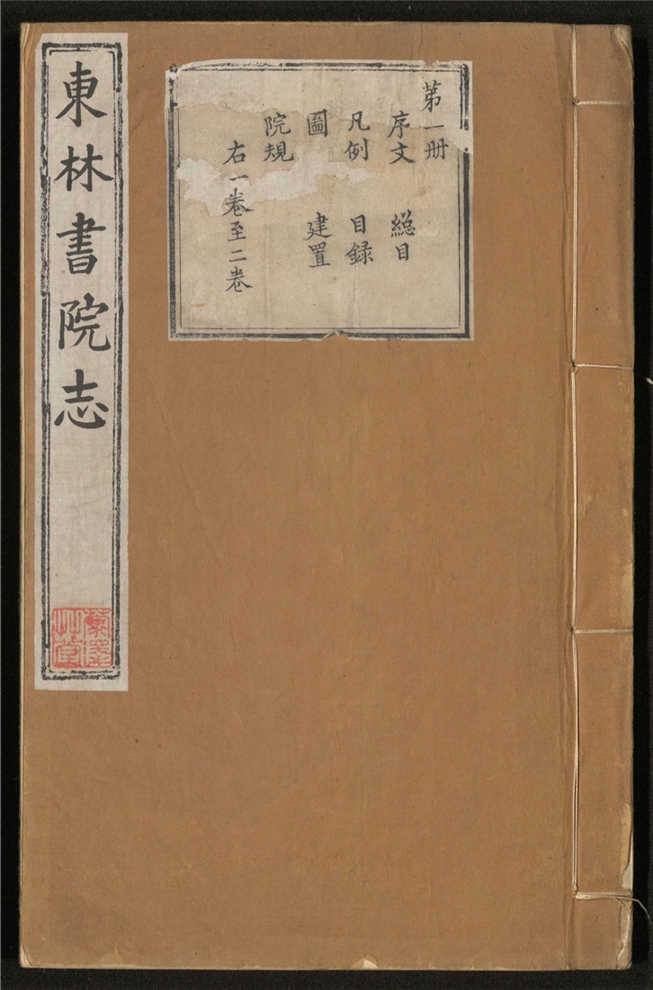 東林書院志
第一册
序文 緫目
凡例 目録
圖 建置
院規
右一卷至二卷